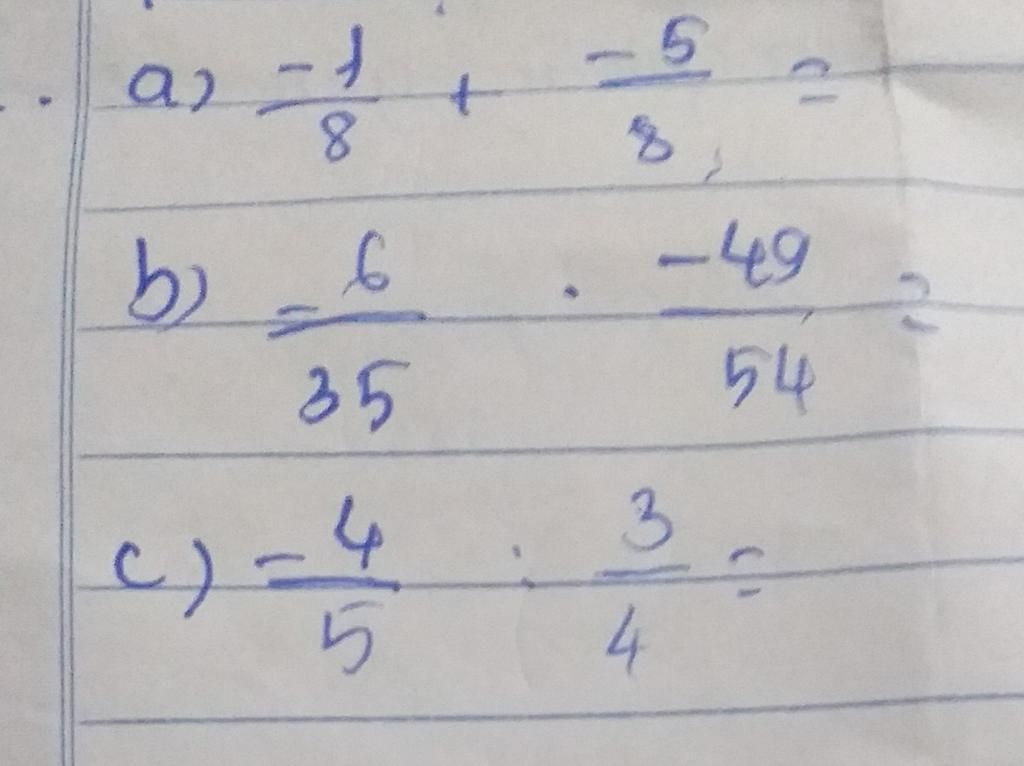 a) -1/8 + -5/8 =
b) -6/35 . -49/54 =
c) -4/5 : 3/4 =